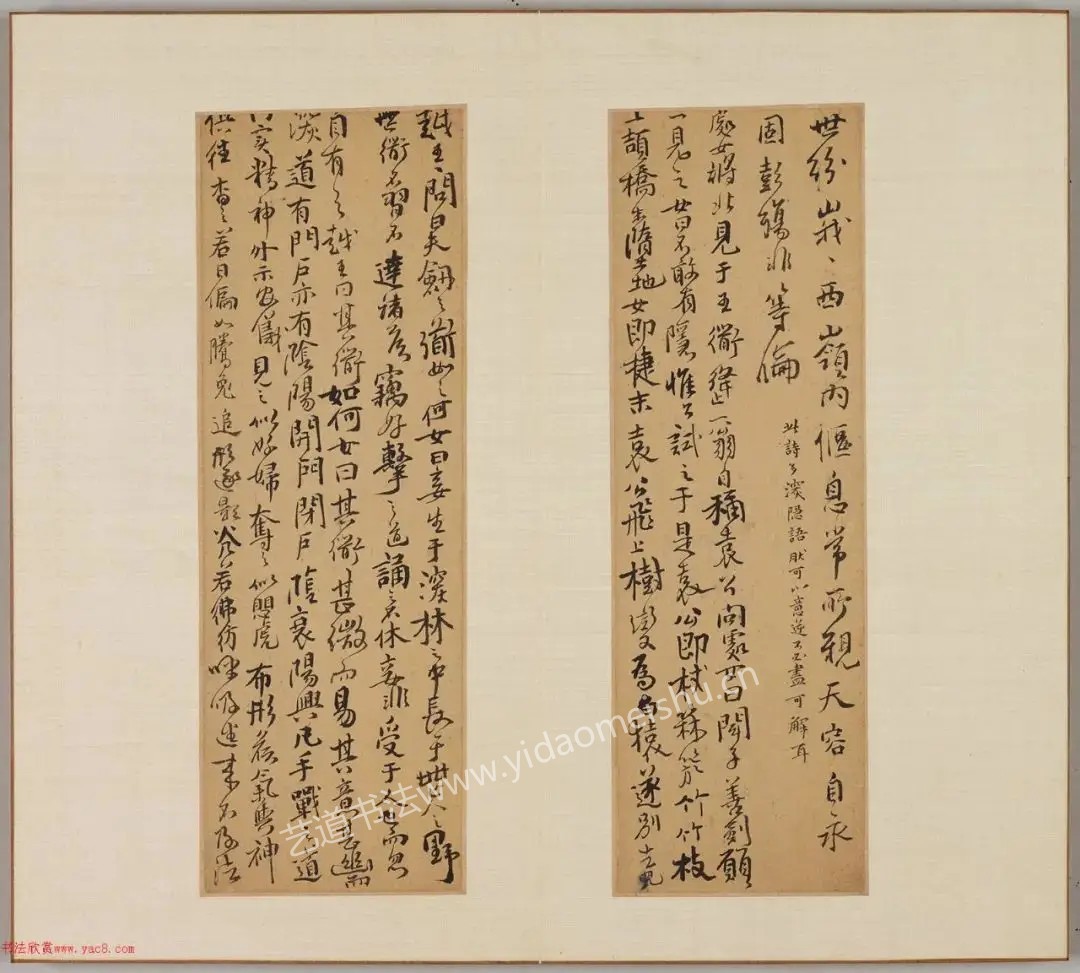 世紛峩〻西嶺內樞息常所親天容自永
固彭殤非等倫
此詩多深隱語然可以意逆不必盡可解耳
處女將北見于王衜逢一翁自稱袁公問處女曰聞子善劍願
一見之女曰不敢有隱惟公試之于是袁公即杖箖箊竹竹枝
上頡橋末墮地女即捷末袁公飛上樹變為白猿遂別去見
越王問曰夫劍之衜如之何女曰妾生于深林之中長于無人之野
無衜不習不達諸侯竊好擊之道誦之不休妾非受于人也而忽
自有之越王曰其衜如何女曰其衜甚微而易其意甚幽而
深道有門戶亦有陰陽開門閉戶陰衰陽興凡手戰之道
內實精神外示安儀見之似好婦奪之似懼虎布形候氣與神
俱往杳之若日偏如騰兔追形逐影光若彿彷呼吸往來不及法
艺道书法www.yidaomeishu.cn
书法欣赏www.yac8.com